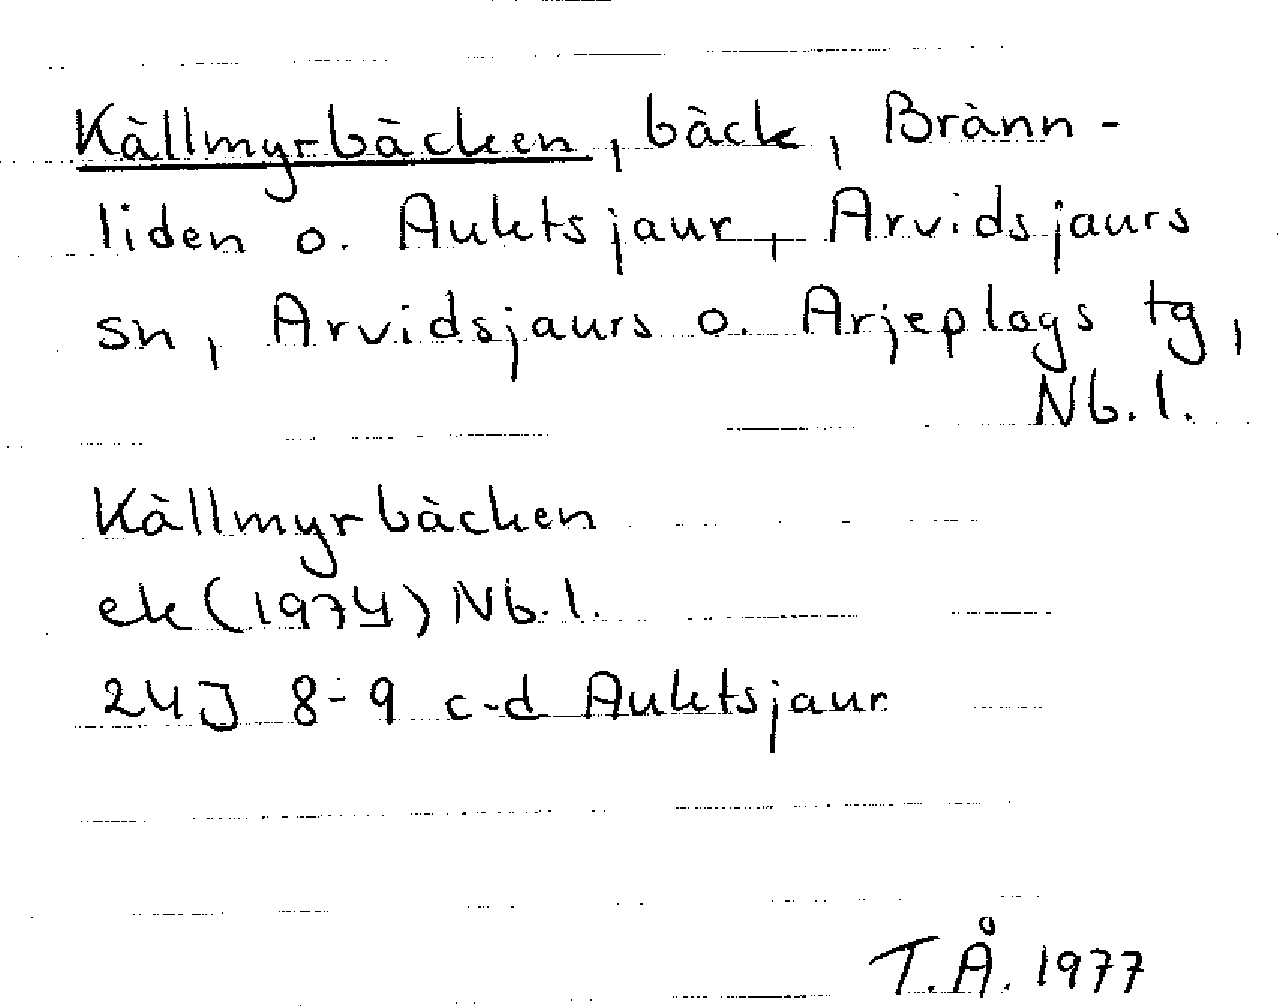 Källmyrbäcken, bäck, Bränn-
liden o. Auktsjaur, Arvidsjaurs
sn, Arvidsjaurs o. Arjeplogs tg,
Nb. l.
Källmyrbäcken
ek (1974) Nb. l.
24J 8-9 c-d Auktsjaur
T.Å. 1977